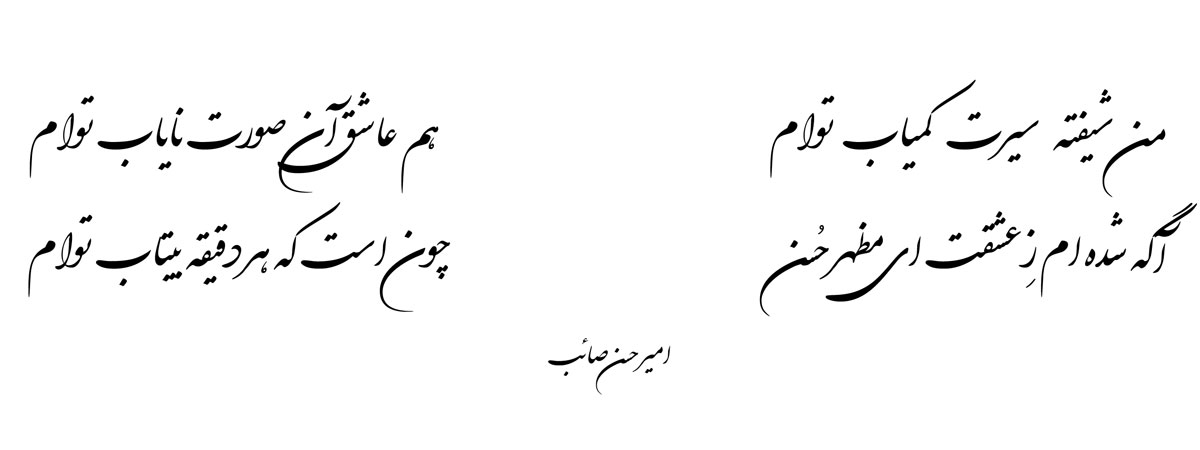 من شیفته سیرت کمیاب توام
هم عاشق آن صورت نایاب توام
آگه شده ام زِ عشقت ای مظهر حُسن
چون است که هر دقیقه بیتاب توام
امیرحسن صائب